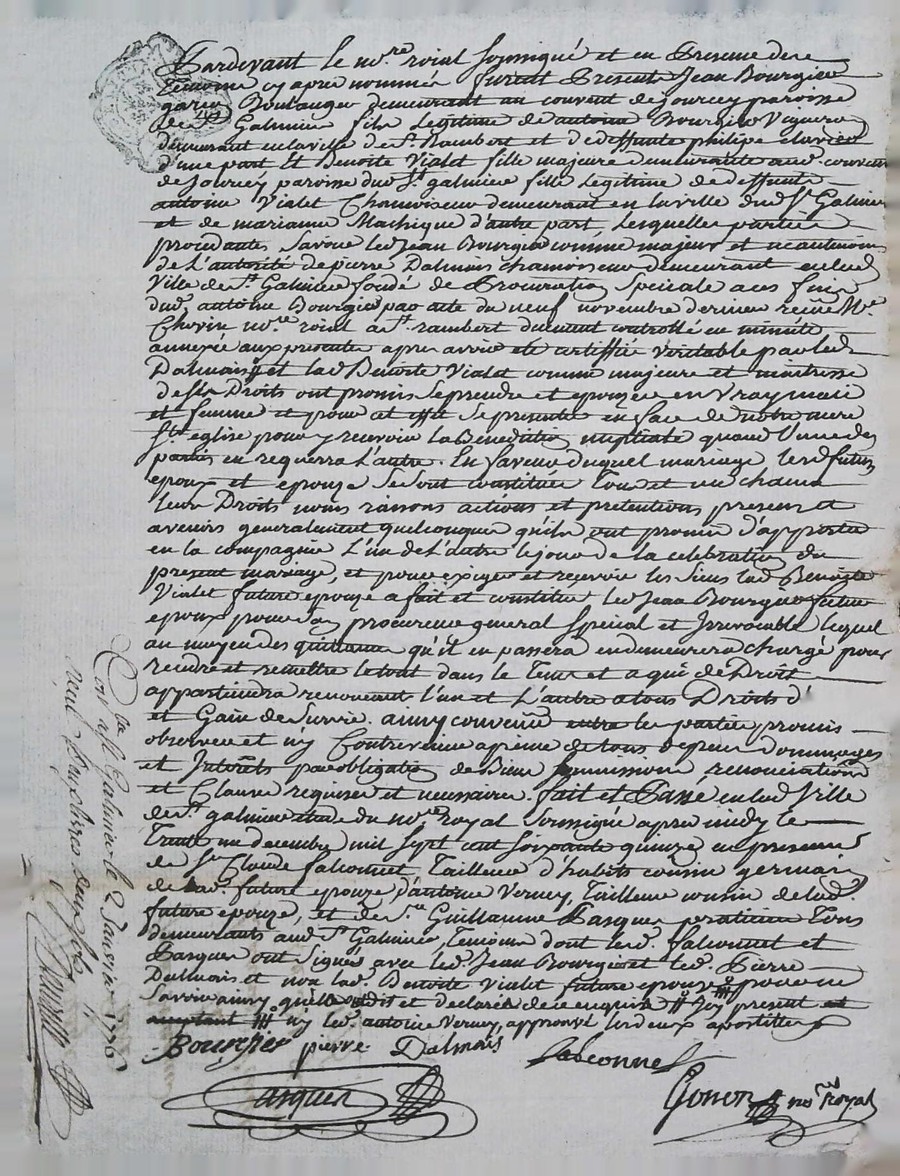 Pardevant le no.re roial soussigné et en presence de
temoins cy apres nommés furent presents Jean Bourgier
garcon Boulanger demeurant au couvent de jourcey paroisse
de St Galmier fils legitime de antoine Bourgier
demeurant en la ville de St Rambert et de deffunte philipe claviere
d'une part Et Benoite Vialet fille majeure demeurante aud. couvent
de Jourcey paroisse dud. St galmier fille legitime de deffunts
antoine Vialet Chamoiseur demeurant en la ville dud St Galmier
et de marianne Machique d'autre part, Lesquelles parties
procedantes Savoir led Jean Bourgier comme majeur et
de L'autorité de pierre Dalmais chamoiseur demeurant en lad
Ville de St Galmier fondé de Procuration Speciale a ces fins
dud. antoine Bourgier par acte du neuf novembre dernier recue Me
Chovin no.re roial a St rambert duement controllé en minute
annexée aux presentes apres avoir eté certiffiée veritable par led
Dalmais et lad Benoite Vialet comme majeure et maitresse
de ses Droits ont promis Se prendre et epouser en Vray mari
et femme et pour cet effet Se presenter en face de notre mere
Ste eglise pour y recevoir la Benediction nuptiale quand l'une des
parties en requerra L'autre. En faveur duquel mariage lesd futurs
epoux et epouze Se sont constitués Tous et un chacun
leurs Droits noms raisons actions et pretentions presents et
avenirs generalement quelconques qu'ils ont promis d'apporter
en la compagnie L'un de L'autre le jour de la celebration du
present mariage, et pour exiger et recevoir les Siens lad Benoite
Vialet future epouze a fait et constitué led Jean Bourgier futur
epoux pour son procureur general Special et Irrevocable lequel
au moyen des quittances qu'il en passera en demeurera chargé pour
rendre et remettre le tout dans le Tems et a qui de Droit
appartiendra renonceant l'un et L'autre a tous Droits d'
et Gain de Survie. ainsy convenu entre les parties promis
observer et n'y Contrevenir a peine de tous depens Dommages
et Interêts par obligation de Biens soumissions renonciations
et Clauses requises et necessaires. fait et Passé en lad Ville
de St galmier etude du no.re royal soussigné apres midy le
Trente un decembre mil Sept cent soixante quinze en presence
de Sr Claude falconnet Tailleur d'habits cousin germain
de lad. future epouze, d'antoine Verney, Tailleur cousin de lad.
future epouze, et de Sr Guillaume Pasquer praticien Tous
demeurants aud St Galmier, Temoins dont led. falconnet et
Pasquer ont Signé avec led. Jean Bourgier et led. Pierre
Dalmais et non lad. Benoite Vialet future epouze pour ne
Savoir ainsy qu'elle a dit et declaré de ce enquise # present et
acceptant # ny led. antoine Verney, approuvé les deux apostilles
Bourgier pierre Dalmais falconnet
Pasquer
Gonon no.re Royal
Con.lé a St Galmier le 2 Janvier 1776